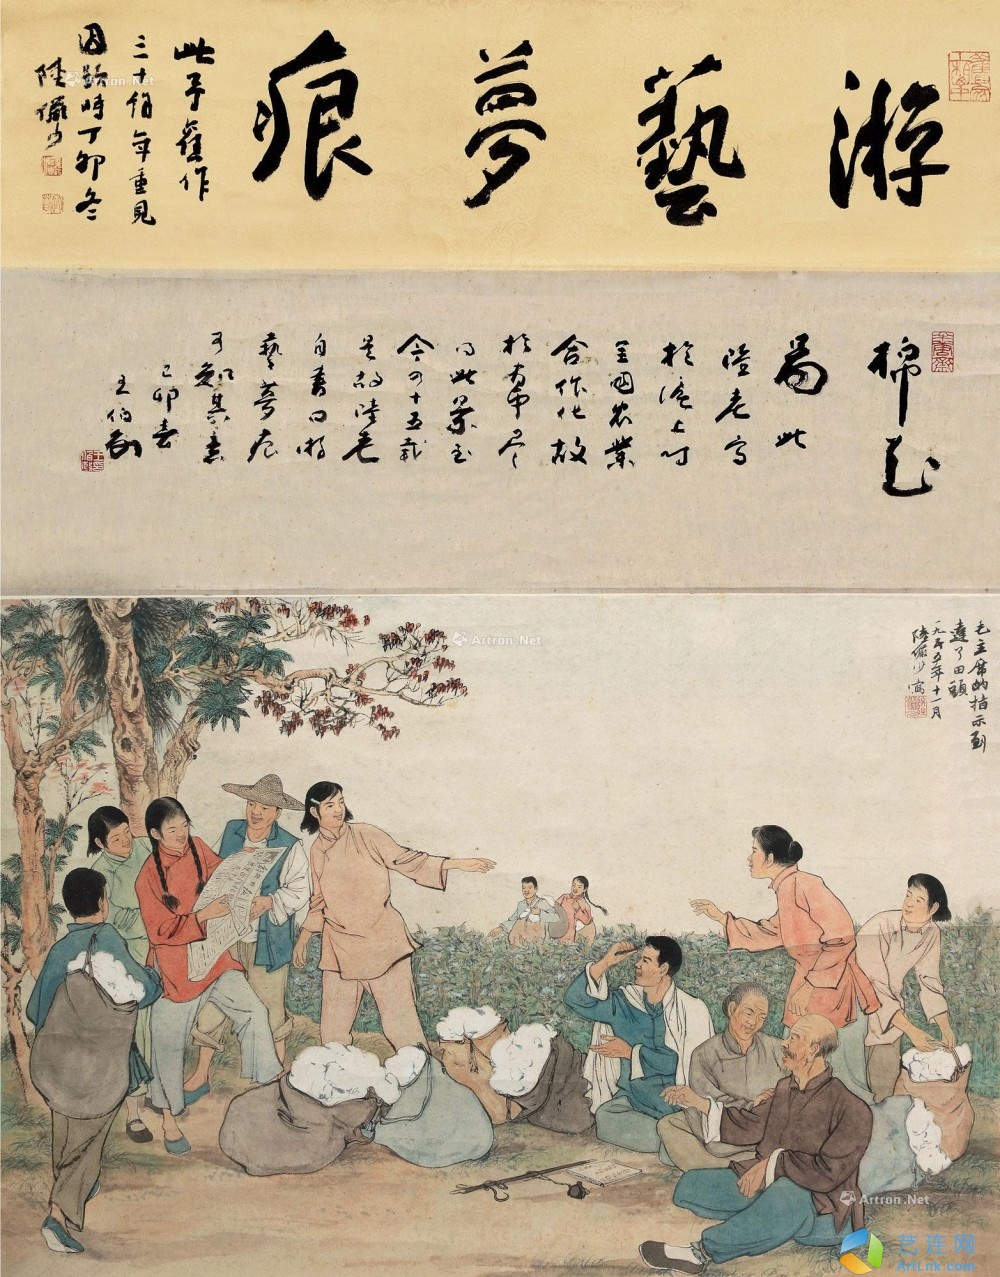 游藝夢痕
此予舊作
三十餘年重見
因題時丁卯冬
陸儼少
棉花
圖此
陸老寫
於滬上时
全國农業
合作化故
於布尽
曰此景至
今四十五載
是故陸老
自書曰游
藝夢痕
可知其意
己卯春
王伯敏
毛主席的指示到
達了田頭
一九五五年十一月
陸儼少寫
Artron.Net
Artron.Net
Artron.Net
Artron.Net
艺连网
ArtLnk.com